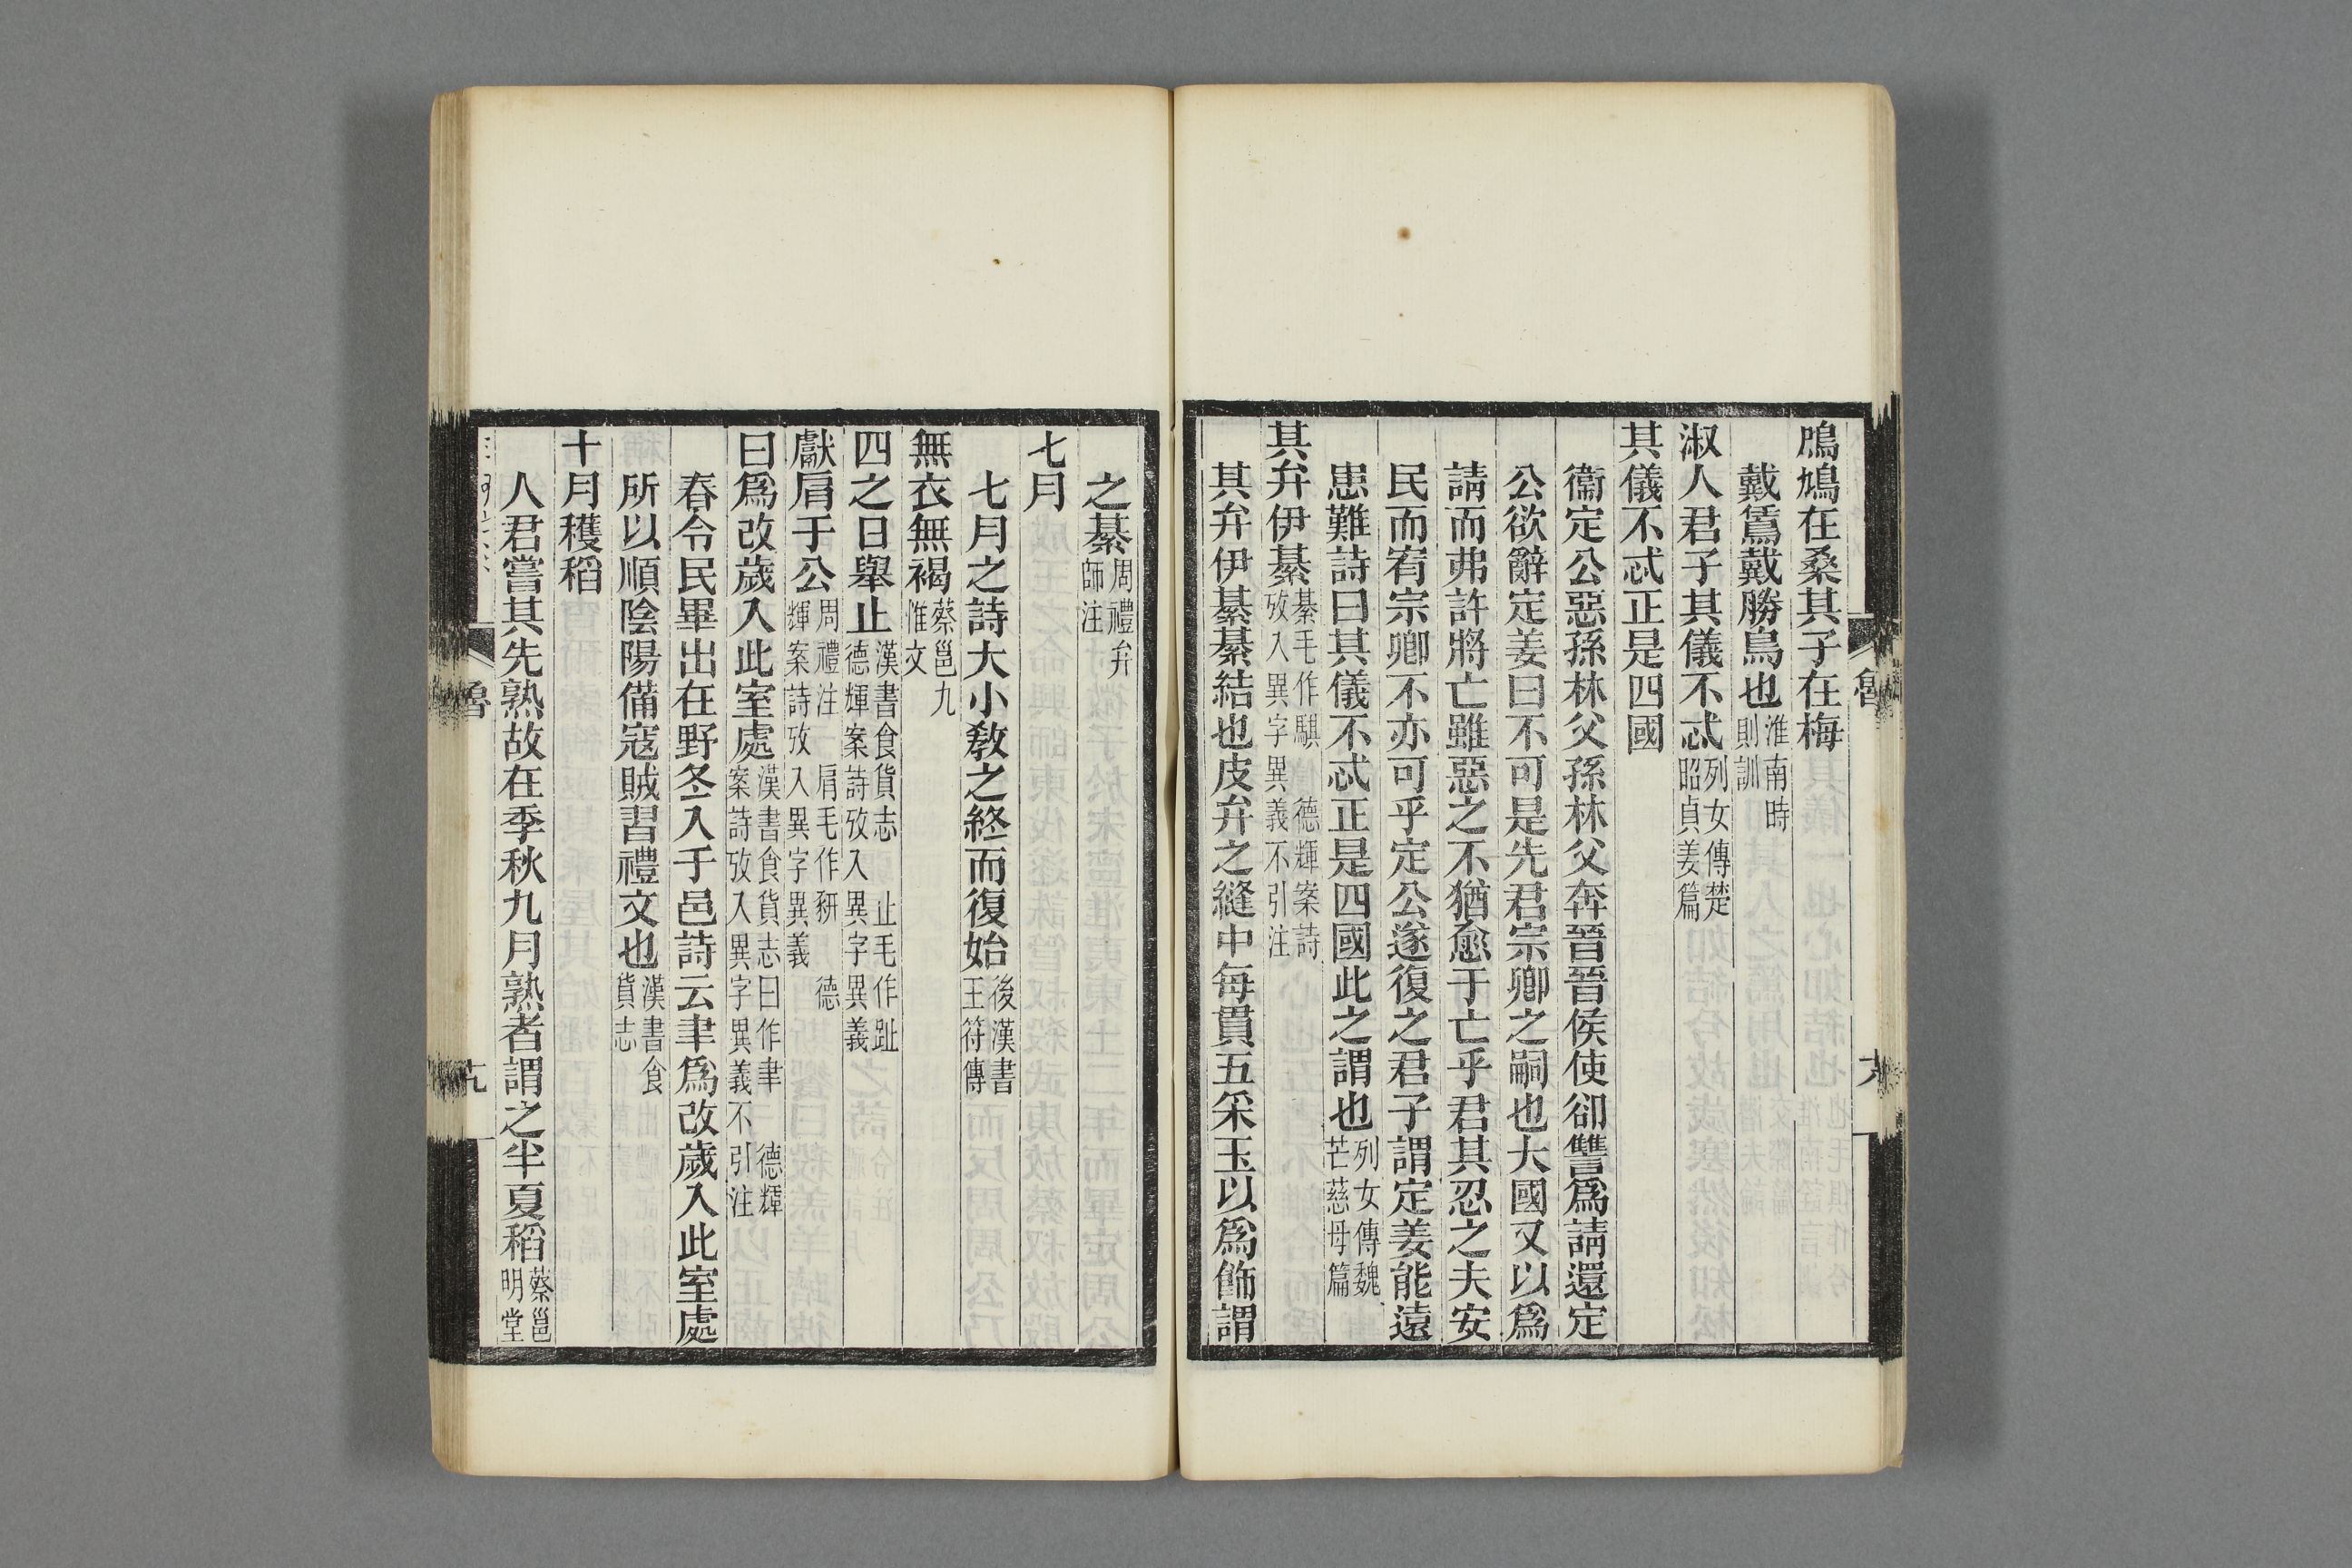 鳲鳩在桑其子在梅
戴鵀戴勝鳥也淮南時則訓
淑人君子其儀不忒列女傳楚昭貞姜篇
其儀不忒正是四國
衞定公惡孫林父孫林父奔晉晉侯使卻犨爲請還定
公欲辭定姜曰不可是先君宗卿之嗣也大國又以爲
請而弗許將亡雖惡之不猶愈于亡乎君其忍之夫安
民而宥宗卿不亦可乎定公遂復之君子謂定姜能遠
患難詩曰其儀不忒正是四國此之謂也列女傳魏芒慈母篇
其弁伊綦綦毛作騏 德輝案詩攷入異字異義不引注
其弁伊綦綦結也皮弁之縫中每貫五采玉以爲飾謂
魯
之綦周禮弁師注
七月
七月之詩大小敎之終而復始後漢書王符傳
無衣無褐蔡邕九惟文
四之日舉止漢書食貨志 止毛作趾德輝案詩攷入異字異義
獻肩于公周禮注 肩毛作豣 德輝案詩攷入異字異義
曰爲改歲入此室處漢書食貨志曰作聿 德輝案詩攷入異字異義不引注
春令民畢出在野冬入于邑詩云聿爲改歲入此室處
所以順陰陽備寇賊習禮文也漢書食貨志
十月穫稻
人君嘗其先熟故在季秋九月熟者謂之半夏稻蔡邕明堂
魯